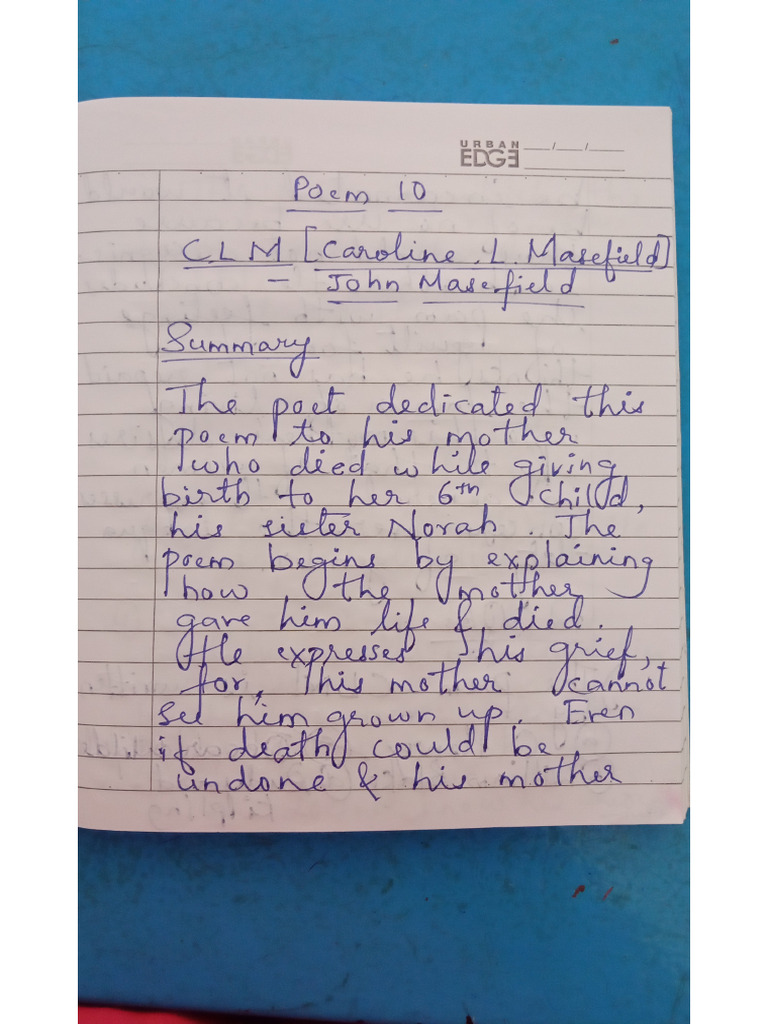 URBAN
EDGE __/__/__
Poem 10
C.L M [Caroline. L. Masefield]
- John Masefield
Summary
The poet dedicated this
poem to his mother
who died while giving
birth to her 6th child,
his sister Norah. The
poem begins by explaining
how the mother
gave him life & died.
He expresses his grief,
for, his mother cannot
see him grown up. Even
if death could be
undone & his mother